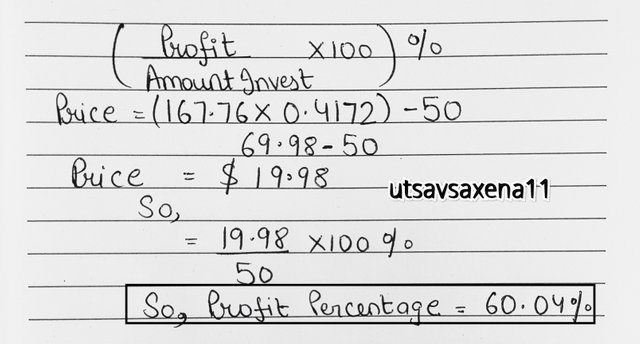 (Profit / Amount Invest ×100) %
Price = (167.76 × 0.4172) - 50
69.98 - 50
Price = $ 19.98
utsavsaxena11
So,
= 19.98 / 50 ×100 %
So, Profit Percentage = 60.04%